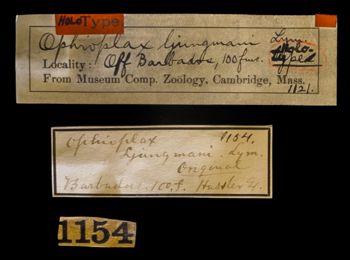 HOLO Type
Ophioplax ljungmani Lym.
Holo-
Locality: Off Barbados, 100 fms. type
From Museum Comp. Zoology, Cambridge, Mass.
1121.
Ophioplax 1154.
Ljungmani. Lym.
Original
Barbados. 100 f. Hassler
1154